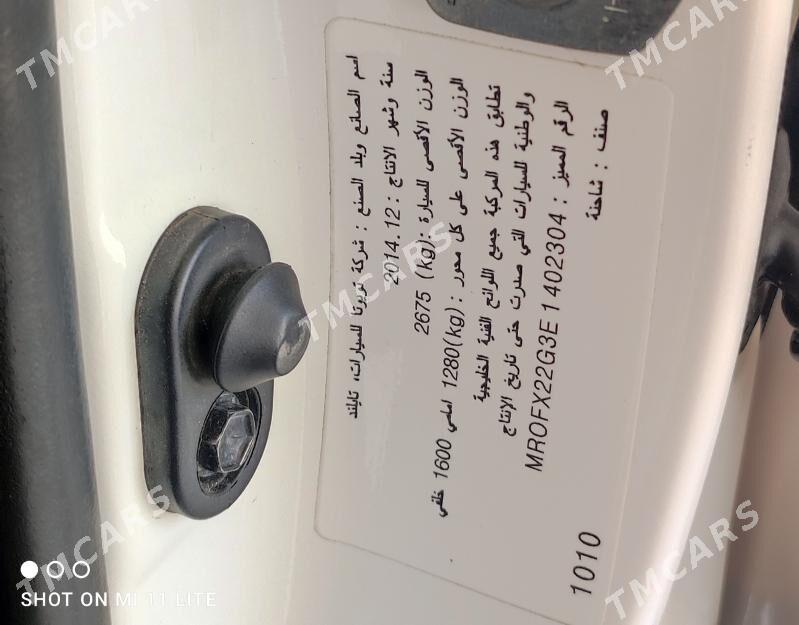 اسم الصانع وبلد الصنع : شركة تويوتا للسيارات، تايلند
سنة وشهر الانتاج : 2014.12
الوزن الأقصى للسيارة :(kg) 2675
الوزن الأقصى على كل محور :(kg)1280 امامي 1600 خلفي
تطابق هذه المركبة جميع اللوائح الفنية الخليجية
والوطنية للسيارات التي صدرت حتى تاريخ الإنتاج
الرقم المميز : MROFX22G3E1402304
صنف : شاحنة
1010
TMCARS
TMCARS
TMCARS
TMCARS
TMCARS
SHOT ON MI 11 LITE